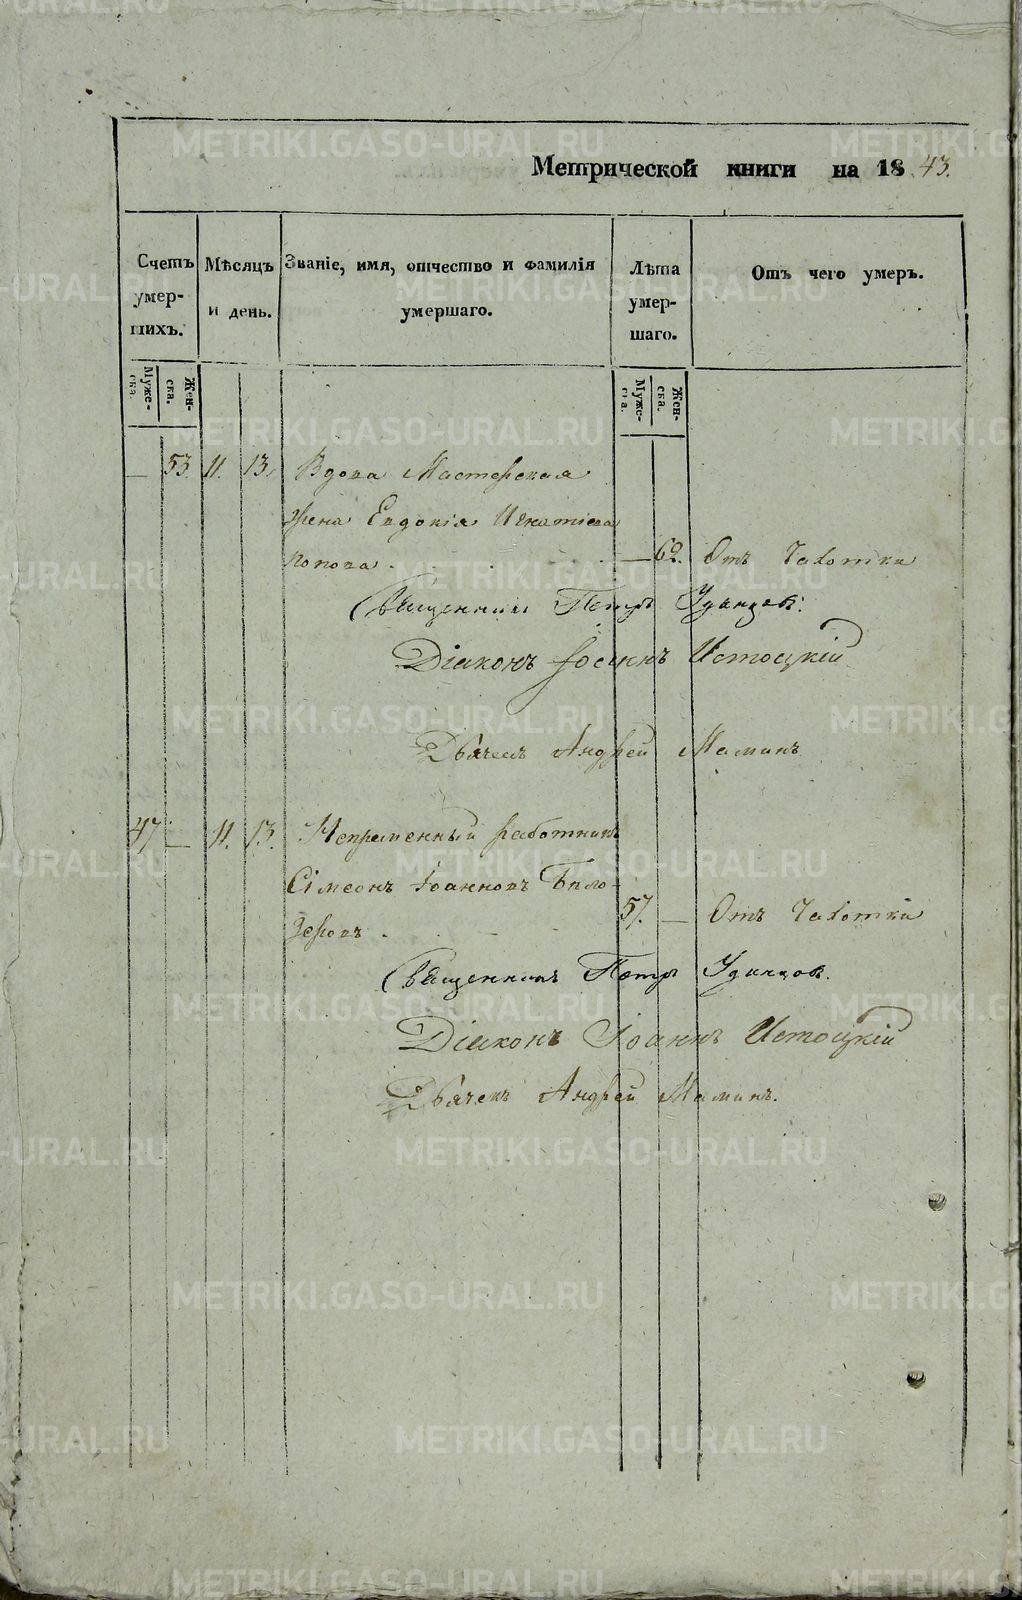 Метрической книги на 1843.
Счетъ умер-шихъ.
Мѣсяцъ и день.
Званіе, имя, отчество и фамилія умершаго.
Лѣта умер-шаго.
Отъ чего умеръ.
Муже-ска.
Жен-ска.
Муже-ска.
Жен-ска.
— 53. 11. 13. Вдова Мастерская
жена Евдокія Игнатіева
Попова . — 60. Отъ Чахотки
Священникъ Петръ Удинцов.
Діаконъ Іоаннъ Истоцкій
Дьячекъ Андрей Маминъ
47 — 11. 13. Непременный работникъ
Сімеонъ Іоанновъ Бѣло-
зеровъ . 57. — Отъ Чахотки
Священникъ Петръ Удинцов.
Діаконъ Іоаннъ Истоцкій
Дьячекъ Андрей Маминъ.
METRIKI.GASO-URAL.RU